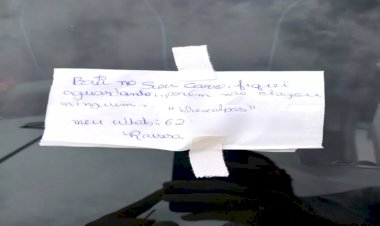 Bati no seu carro, fiquei
aguardando, porém não chegou
ninguém. "Desculpas"
meu Whats: 62